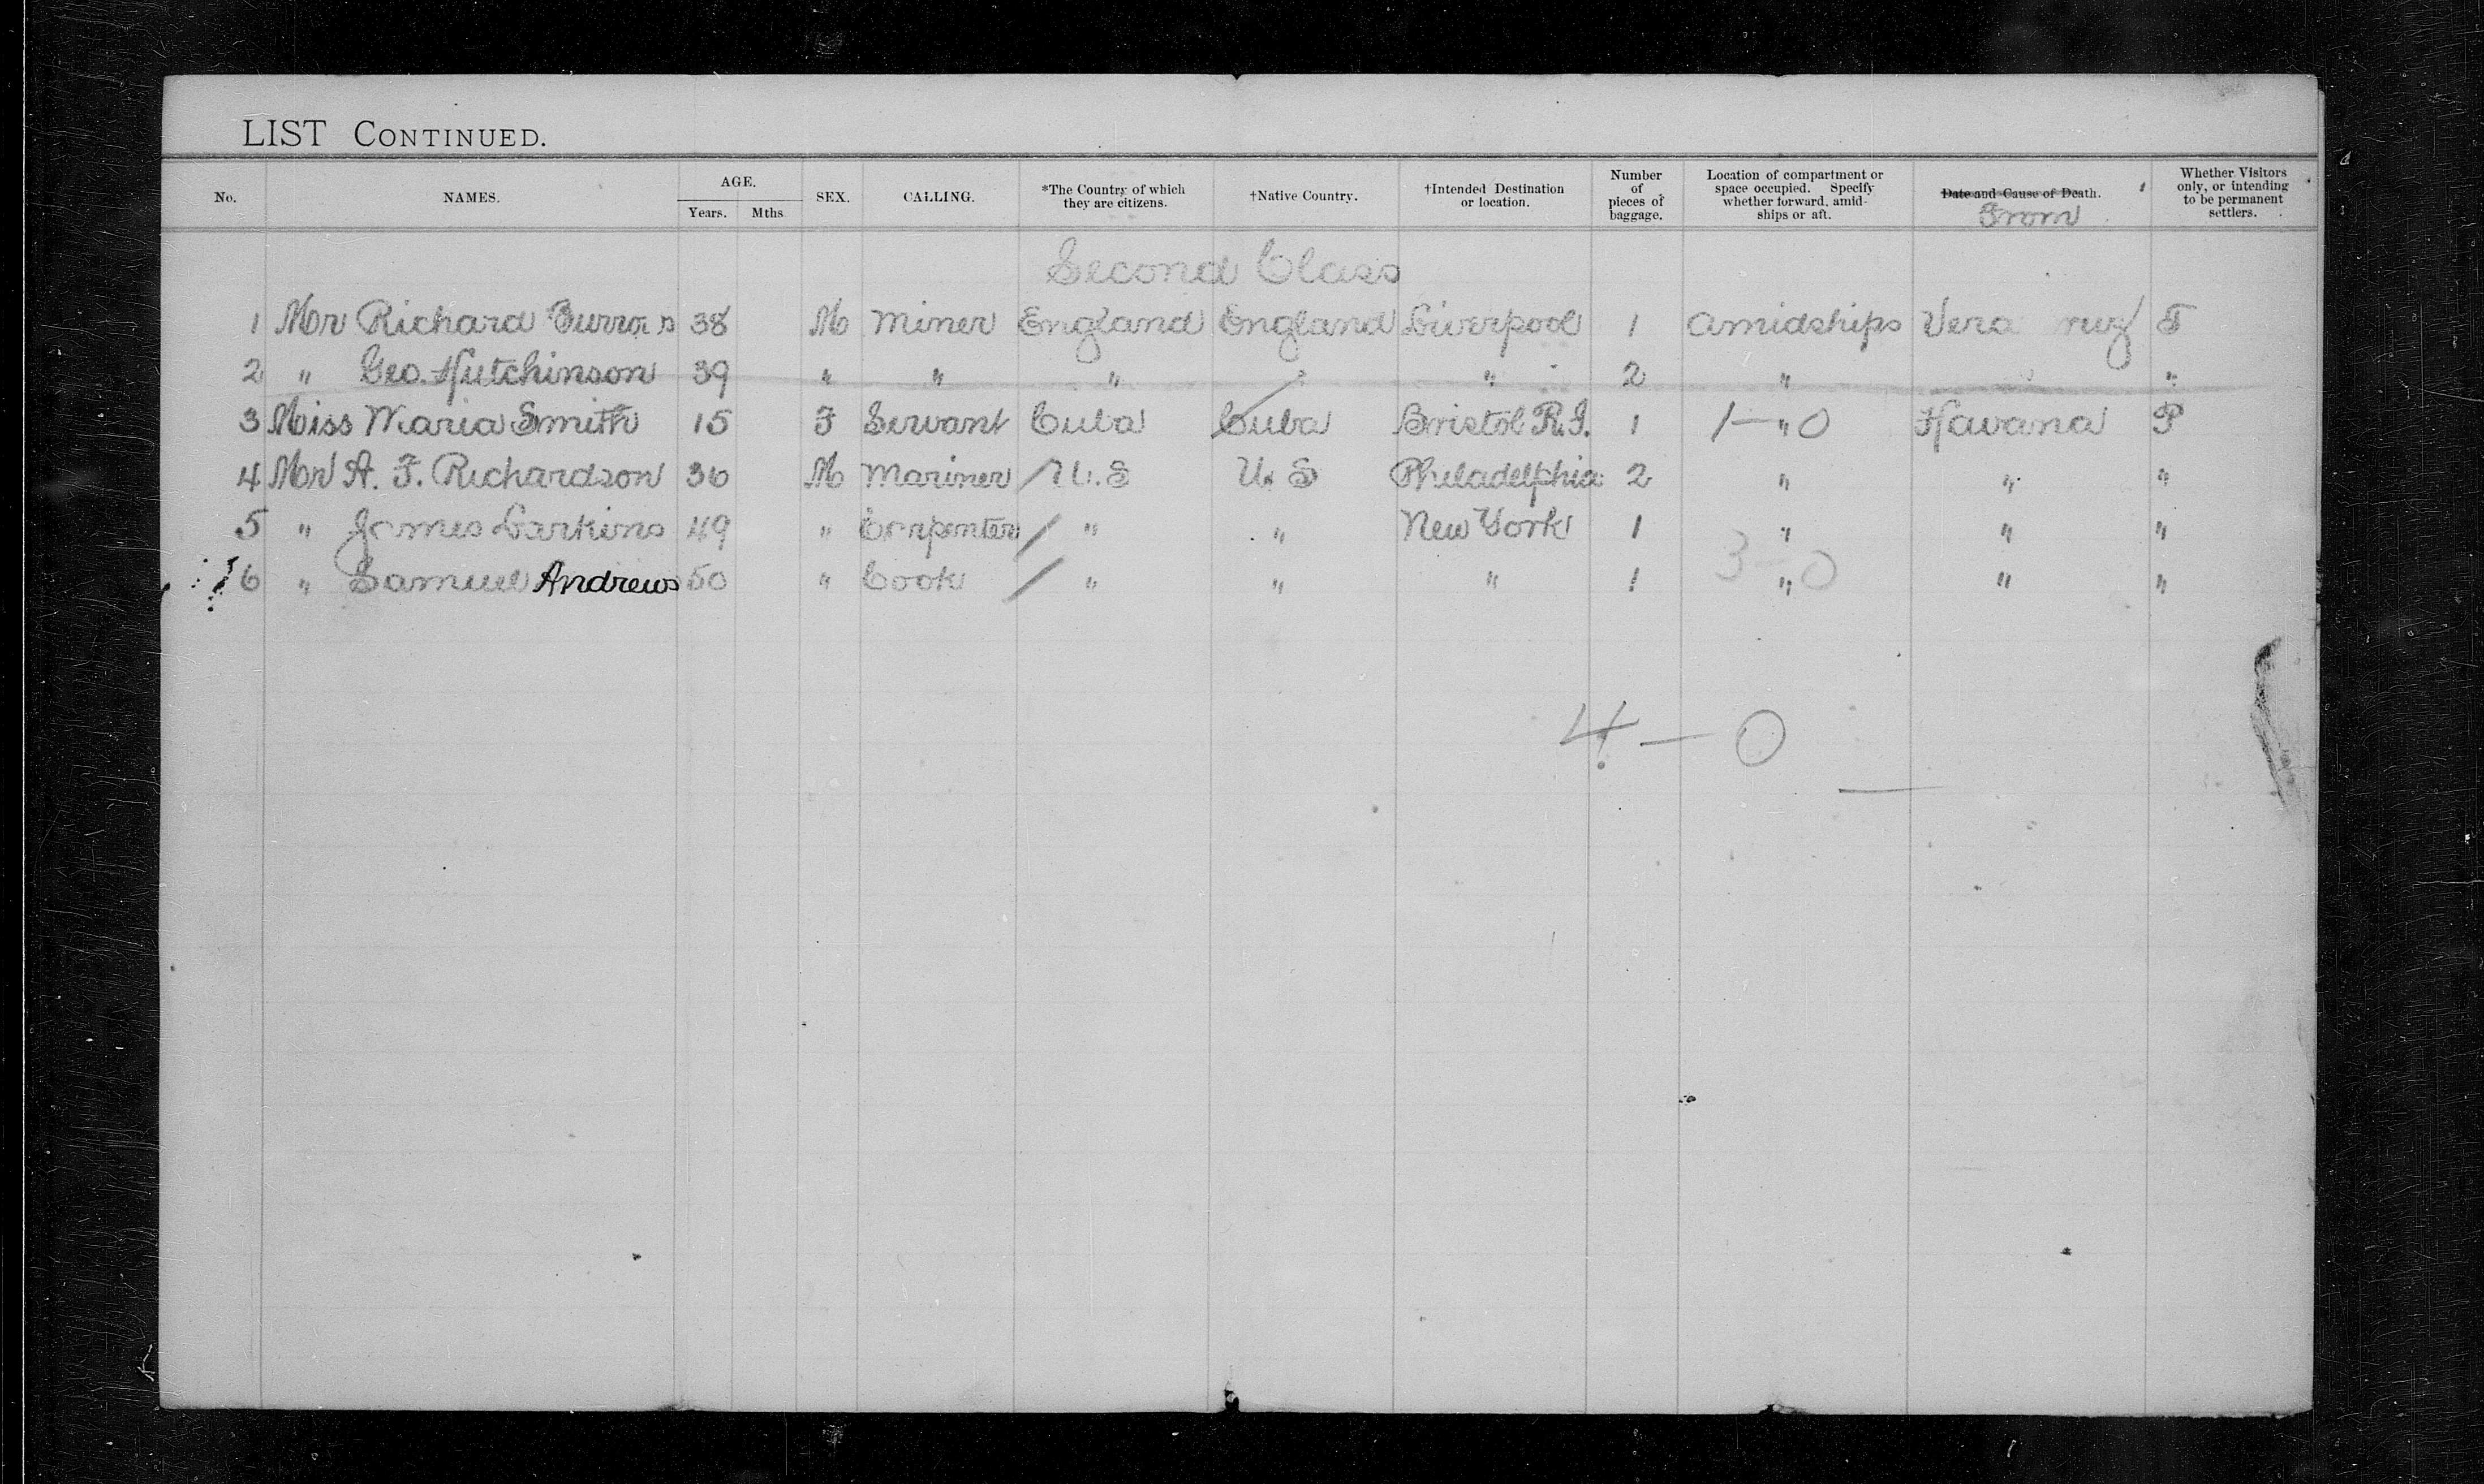 LIST CONTINUED.
No. NAMES. AGE. Years. Mths. SEX. CALLING. *The Country of which they are citizens. †Native Country. †Intended Destination or location. Number of pieces of baggage. Location of compartment or space occupied. Specify whether forward, amidships or aft. Date and Cause of Death. From Whether Visitors only, or intending to be permanent settlers.
Second Class
1 Mr Richard 38 M Miner England England Liverpool 1 Amidships Vera ruz T
2 " Geo. Hutchinson 39 " " " " " 2 " "
3 Miss Maria Smith 15 F Servant Cuba Cuba Bristol R.I. 1 1-"0 Havana P
4 Mr A. F. Richardson 36 M Mariner / U.S U.S Philadelphia 2 " " "
5 " James Larkins 49 " Carpenter / " " New York 1 " " "
3-0
6 " Samuel Andrews 50 " Cook / " " " 1 " " "
4-0